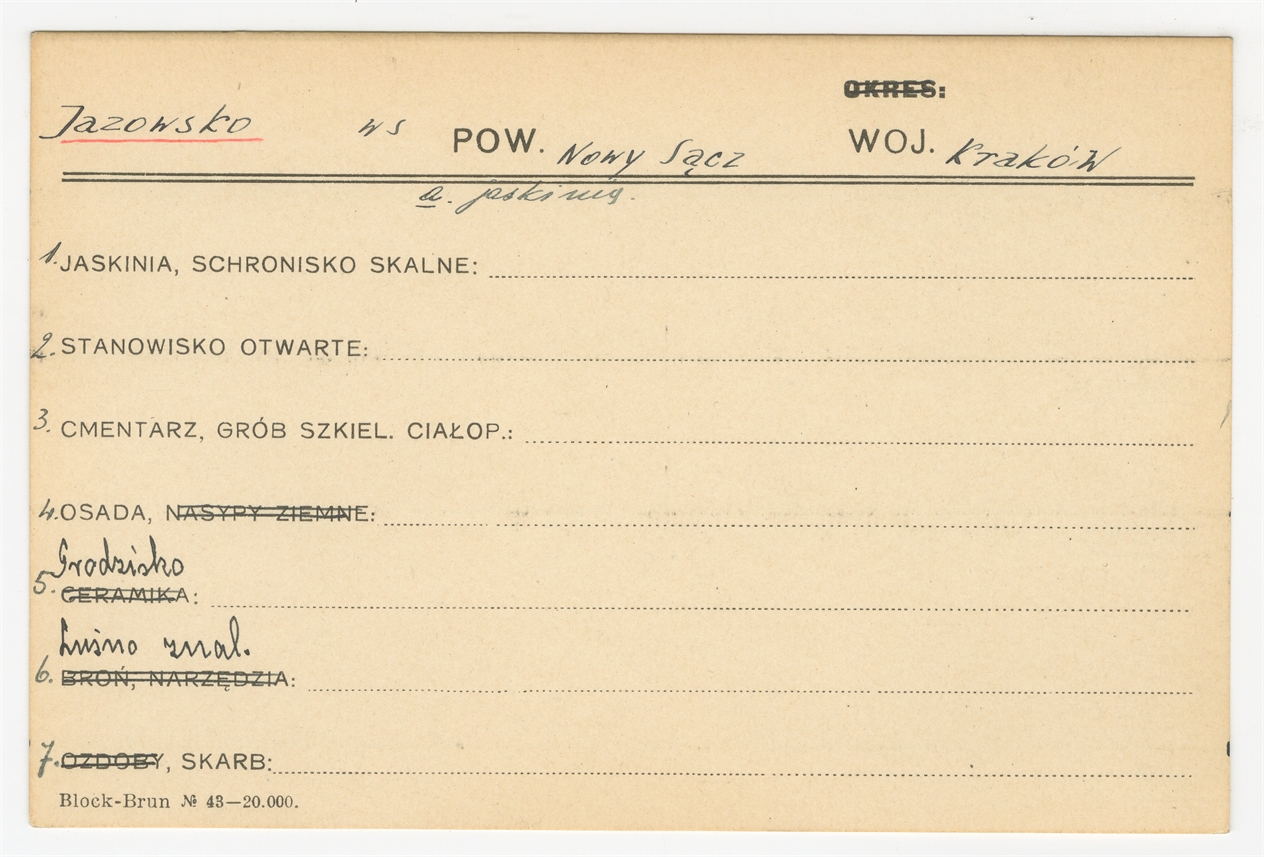 OKRES:
Jazowsko ws POW. Nowy Sącz WOJ. Kraków
a. jaskinią.
1. JASKINIA, SCHRONISKO SKALNE:
2. STANOWISKO OTWARTE:
3. CMENTARZ, GRÓB SZKIEL. CIAŁOP.:
4. OSADA, NASYPY ZIEMNE:
Grodzisko
5. CERAMIKA:
Luźno znal.
6. BROŃ, NARZĘDZIA:
7. OZDOBY, SKARB:
Block-Brun № 43—20.000.